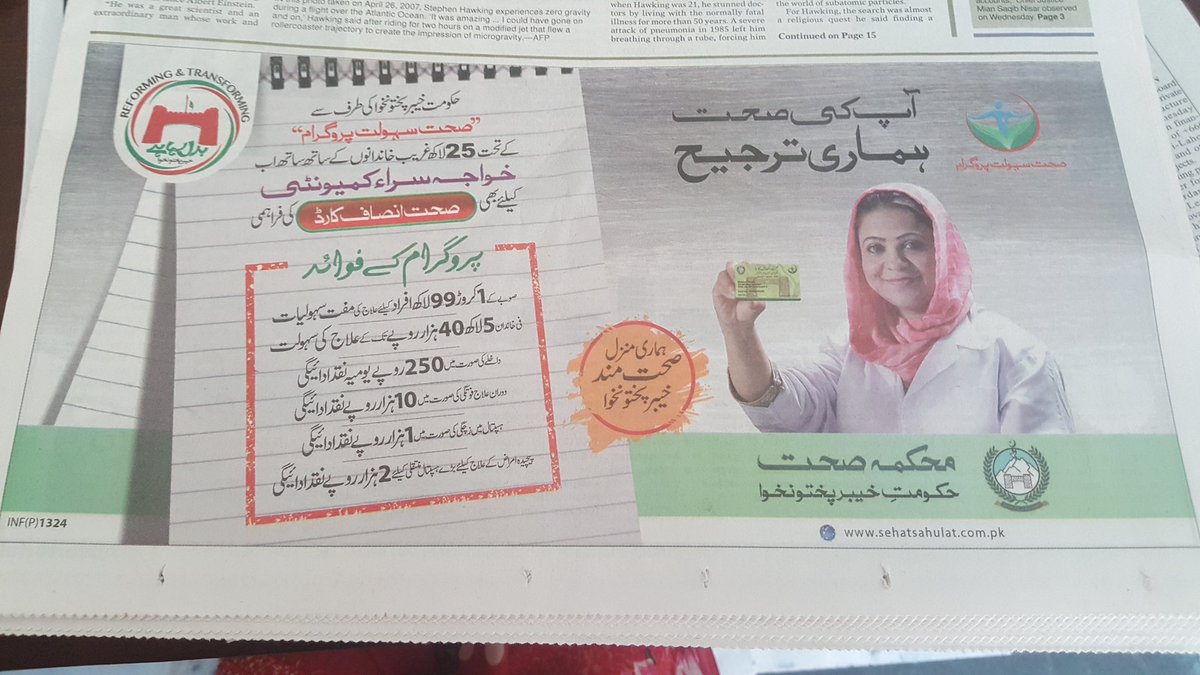 Albert Einstein.
"He was a great scientist and an
extraordinary man whose work and
photo taken on April 26, 2007, Stephen Hawking experiences zero gravity
during a flight over the Atlantic Ocean. 'It was amazing ... I could have gone on
and on,' Hawking said after riding for two hours on a modified jet that flew a
rollercoaster trajectory to create the impression of microgravity.—AFP
when Hawking was 21, he stunned doc-
tors by living with the normally fatal
illness for more than 50 years. A severe
attack of pneumonia in 1985 left him
breathing through a tube, forcing him
the world of subatomic particles.
For Hawking, the search was almost
a religious quest he said finding a
Continued on Page 15
Mian Saqib Nisar observed
on Wednesday. Page 3
REFORMING & TRANSFORMING
حکومت خیبر پختونخوا کی طرف سے
"صحت سہولت پروگرام"
کے تحت 25 لاکھ غریب خاندانوں کے ساتھ ساتھ اب
خواجہ سراء کمیونٹی
کیلئے بھی صحت انصاف کارڈ کی فراہمی
پروگرام کے فوائد
صوبے کے 1 کروڑ 99 لاکھ افراد کیلئے علاج کی مفت سہولیات
فی خاندان 5 لاکھ 40 ہزار روپے تک کے علاج کی سہولت
داخلے کی صورت میں 250 روپے یومیہ نقد ادائیگی
دوران علاج فوتگی کی صورت میں 10 ہزار روپے نقد ادائیگی
ہسپتال میں زچگی کی صورت میں 1 ہزار روپے نقد ادائیگی
پیچیدہ امراض کے علاج کیلئے بڑے ہسپتال منتقلی کیلئے 2 ہزار روپے نقد ادائیگی
INF(P)1324
آپ کی صحت
ہماری ترجیح
صحت سہولت پروگرام
ہماری منزل
صحت مند
خیبر پختونخوا
محکمہ صحت
حکومتِ خیبر پختونخوا
www.sehatsahulat.com.pk